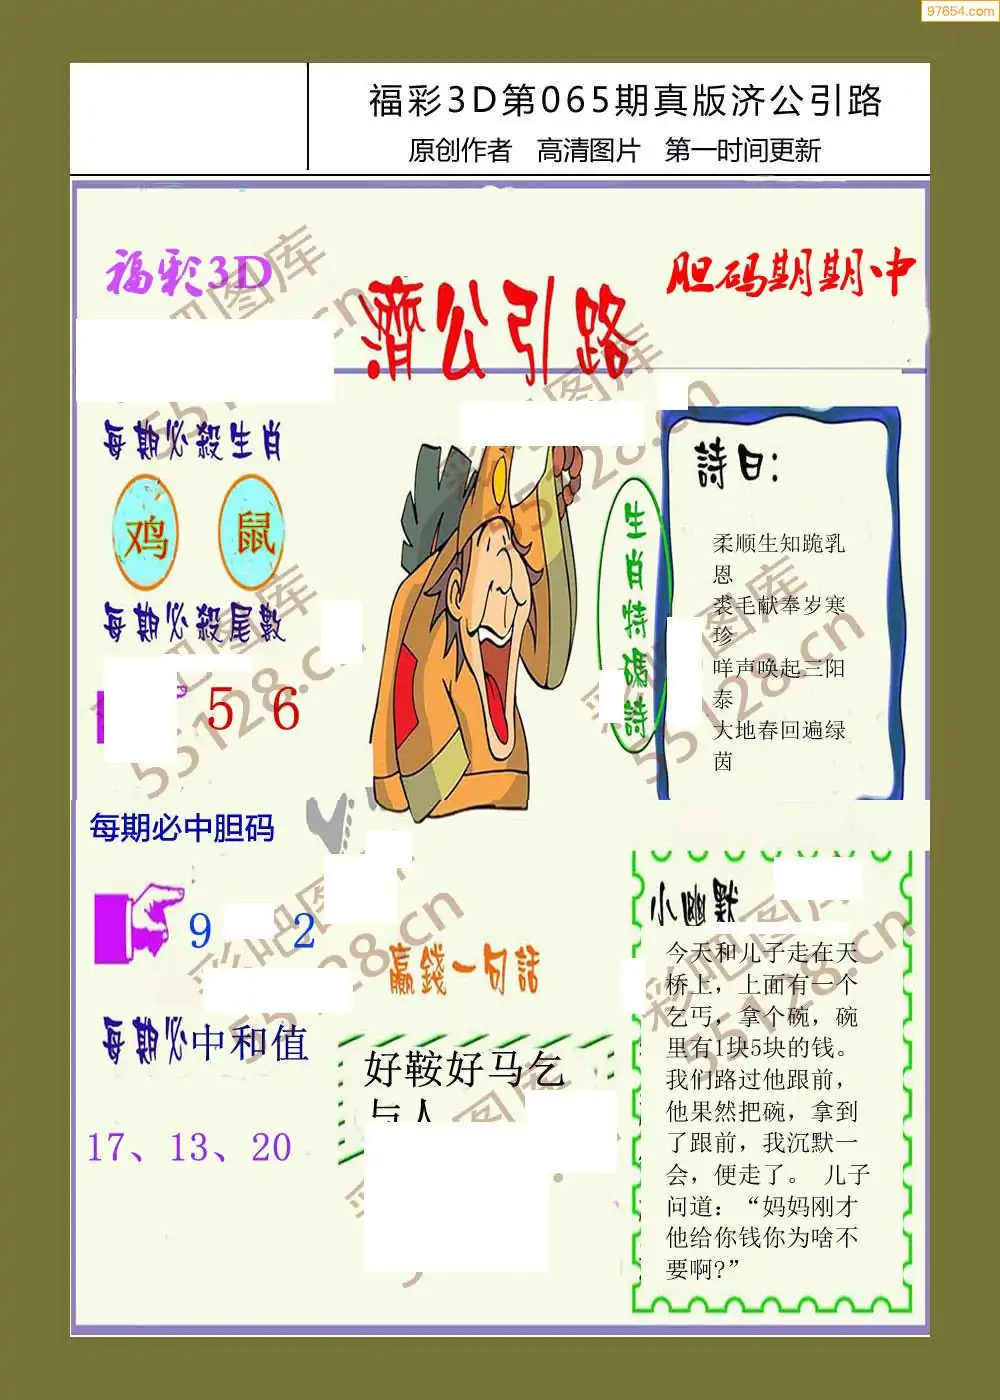 97654.com
福彩3D第065期真版济公引路
原创作者 高清图片 第一时间更新
福彩3D
濟公引路
胆码期期中
每期必殺生肖
鸡 鼠
每期必殺尾數
5 6
每期必中胆码
9 2
每期必中和值
17、13、20
生肖特碼詩
詩曰:
柔顺生知跪乳
恩
裘毛献奉岁寒
珍
咩声唤起三阳
泰
大地春回遍绿
茵
赢錢一句話
好鞍好马乞
与人
小幽默
今天和儿子走在天
桥上，上面有一个
乞丐，拿个碗，碗
里有1块5块的钱。
我们路过他跟前，
他果然把碗，拿到
了跟前，我沉默一
会，便走了。 儿子
问道：“妈妈刚才
他给你钱你为啥不
要啊?”
彩吧图库
55128.cn